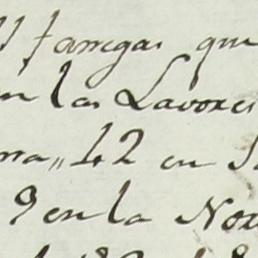 fanegas que
en las Lavores
rra,, 42 en S
9 en la Nor